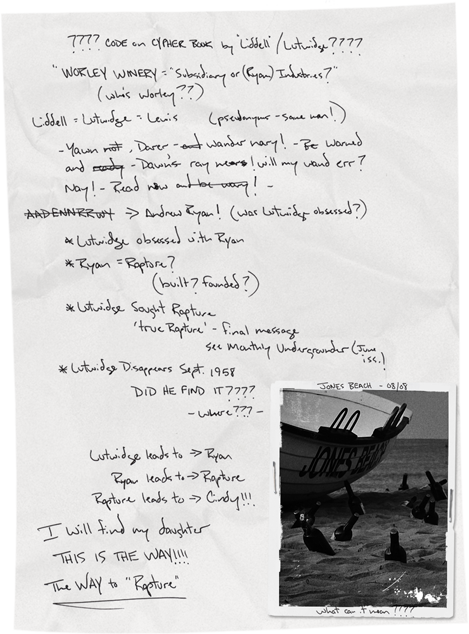 ???? CODE on CYPHER BOOK by "Liddell"/Lutwidge????
"WORLEY WINERY = "Subsidiary or (Ryan) Industries?"
(who's Worley??)
Liddell = Lutwidge = Lewis (pseudonyms - same man!)
- Yawn not, Darer - and wander nary! - Be warned
and ready - Dawn's ray nears! Will my wand err?
Nay! - Read now and be wary! -
AADENNRRWY => Andrew Ryan! (was Lutwidge obsessed?)
* Lutwidge obsessed with Ryan
* Ryan = Rapture?
(built? founded?)
* Lutwidge Sought Rapture
'true Rapture' - final message
see Monthly Undergrounder (June
iss.)
* Lutwidge Disappears Sept. 1958
DID HE FIND IT????
- where??? -
Lutwidge leads to => Ryan
Ryan leads to => Rapture
Rapture leads to => Cindy!!!
I will find my daughter
THIS IS THE WAY!!!!
The WAY to "Rapture"
JONES BEACH - 08/08
JONES BEA
what can it mean ????